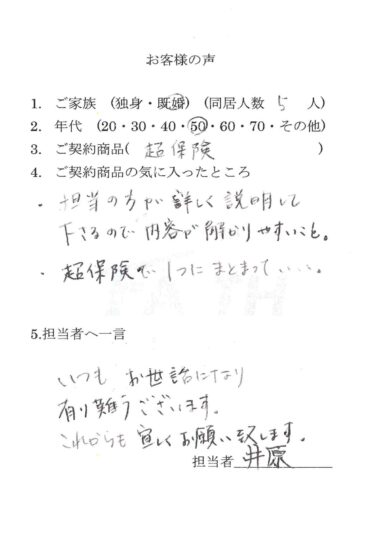 お客様の声
1. ご家族 (独身・既婚) (同居人数 5 人)
2. 年代 (20・30・40・50・60・70・その他)
3. ご契約商品( 超保険 )
4. ご契約商品の気に入ったところ
・担当の方が詳しく説明して
下さるので内容が解かりやすいこと。
・超保険で1つにまとまっていい。
5.担当者へ一言
いつもお世話になり
有り難うございます。
これからも宜しくお願い致します。
担当者 井原